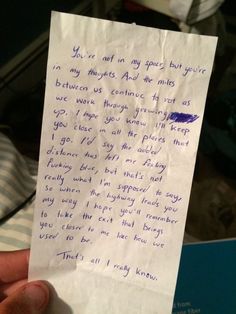 You're not in my space, but you're
in my thoughts. And the miles
between us continue to rot as
we work through growing
up. I hope you know I'll keep
you close in all the places that
I go. I'd say the added
distance has left me fucking
fucking blue, but that's not
really what I'm supposed to say.
So when the highway leads you
my way I hope you'll remember
to take the exit that brings
you closer to me like how we
used to be.
That's all I really know.